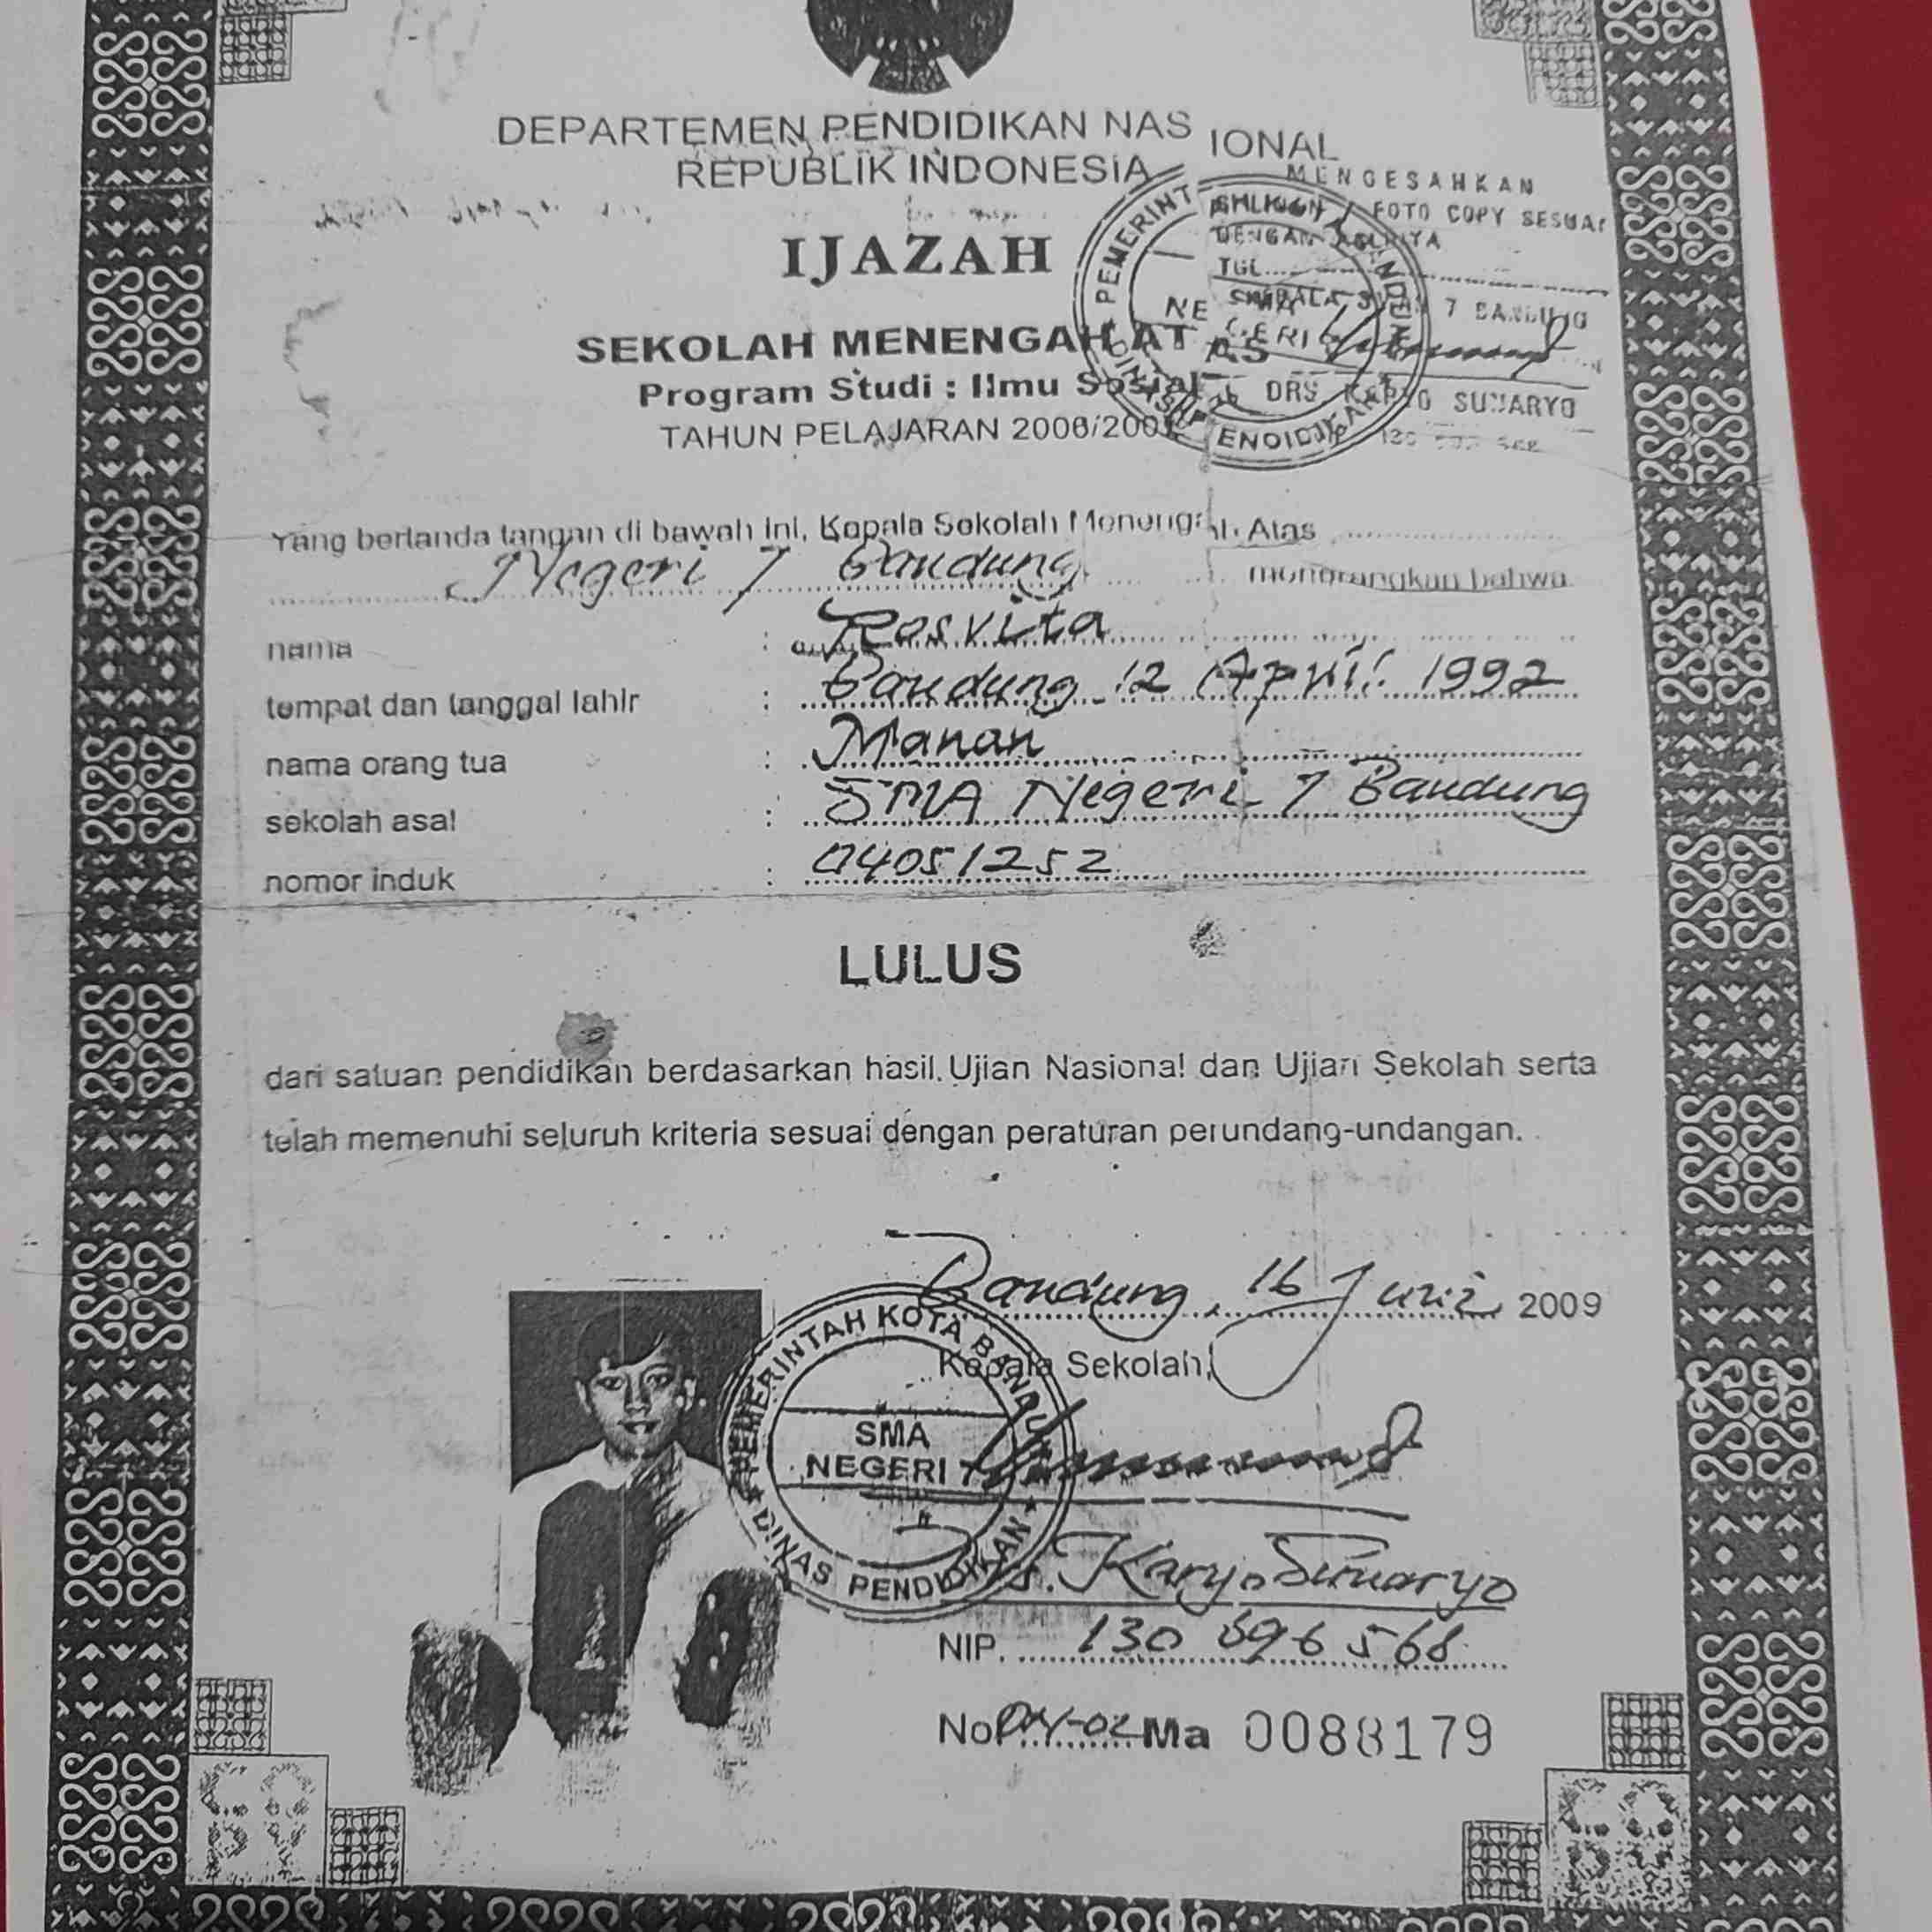 DEPARTEMEN PENDIDIKAN NASIONAL
REPUBLIK INDONESIA
MENGESAHKAN
FOTO COPY SESUAI
DENGAN ASLINYA
TGL
7 BANDUNG
DRS. KARYO SUMARYO
IJAZAH
SEKOLAH MENENGAH ATAS
Program Studi : Ilmu Sosial
TAHUN PELAJARAN
Yang bertanda tangan di bawah ini, Kepala Sekolah Menengah Atas
Negeri 7 Bandung menerangkan bahwa
nama : Rosvita
tempat dan tanggal lahir : Bandung 12 April 1992
nama orang tua : Manan
sekolah asal : SMA Negeri 7 Bandung
nomor induk : 04051252
LULUS
dari satuan pendidikan berdasarkan hasil Ujian Nasional dan Ujian Sekolah serta
telah memenuhi seluruh kriteria sesuai dengan peraturan perundang-undangan.
Bandung, 16 Juni 2009
Kepala Sekolah,
PEMERINTAH KOTA BANDUNG
SMA
NEGERI 7
DINAS PENDIDIKAN
Drs. Karyo Sumaryo
NIP. 130 696 568
No. Ma 0088179